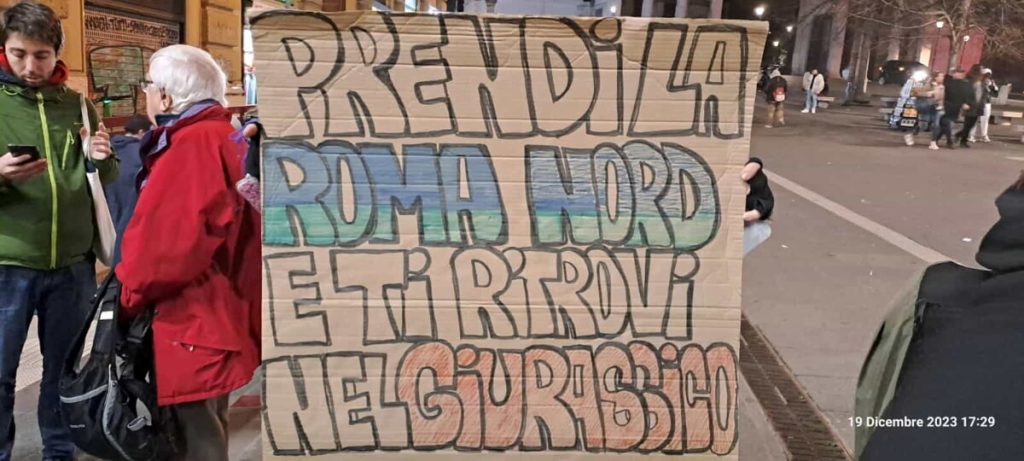 PRENDI LA
ROMA NORD
E TI RITROVI
NEL GIURASSICO
19 Dicembre 2023 17:29